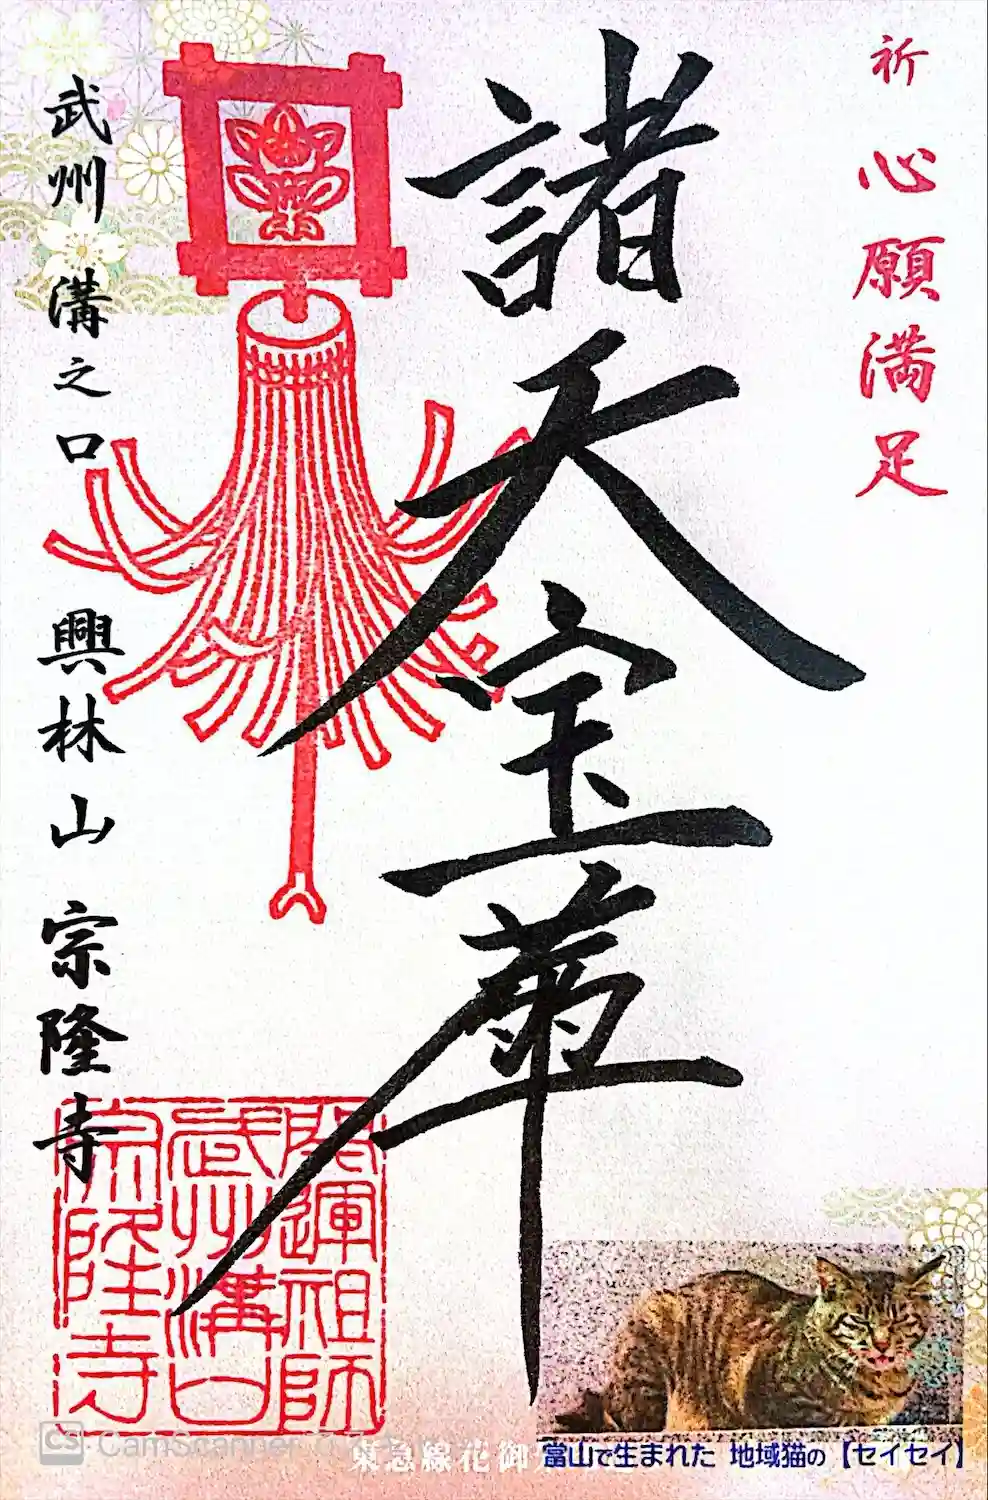 祈 心願満足
諸天宝華
武州 溝之口 興林山 宗隆寺
開運祖師
武州溝口
宗隆寺
當山で生まれた 地域猫の【セイセイ】
東急線花御
CS CamScanner